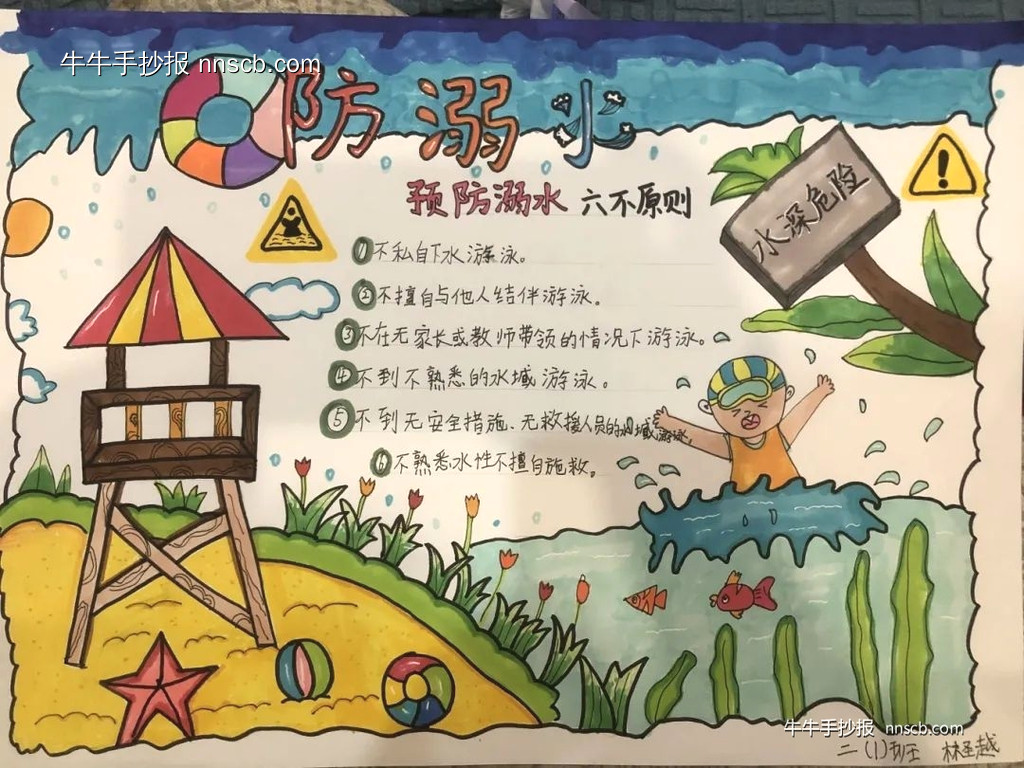 牛牛手抄报 nnscb.com
防溺水
预防溺水 六不原则
水深危险
①不私自下水游泳。
②不擅自与他人结伴游泳。
③不在无家长或教师带领的情况下游泳。
④不到不熟悉的水域游泳。
⑤不到无安全措施、无救援人员的水域游泳。
⑥不熟悉水性不擅自施救。
牛牛手抄报 nnscb.com
二(1)班